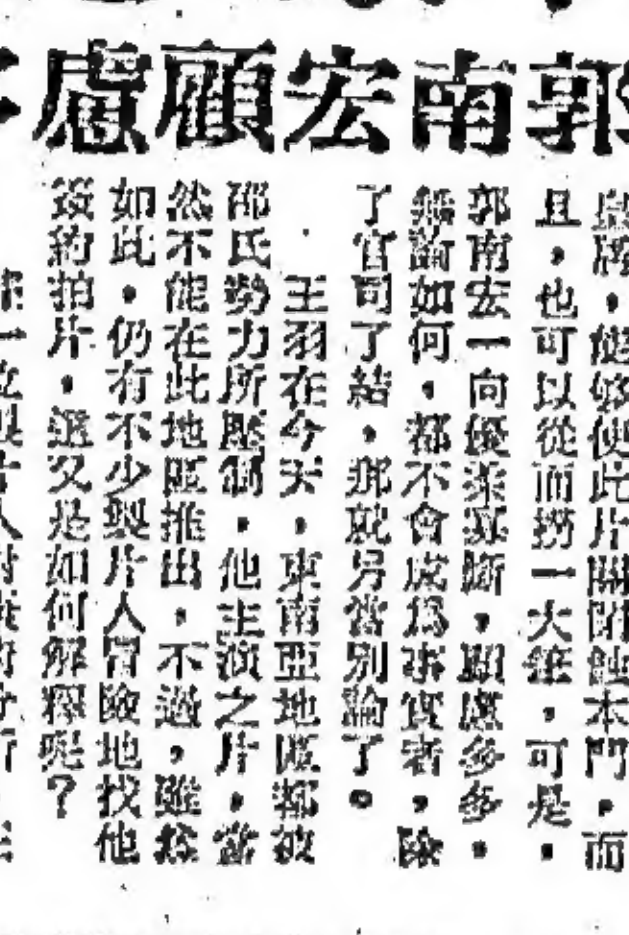 郭南宏顧慮
皇牌，能够使此片關閉蝕本門，而
且，也可以從而撈一大筆，可是，
郭南宏一向優柔寡斷，顧慮多多，
無論如何，都不會成爲事實者，除
了官司了結，那就另當別論了。
王羽在今天，東南亞地區都被
邵氏勢力所壓制，他主演之片，當
然不能在此地區推出，不過，雖然
如此，仍有不少製片人冒險地找他
簽約拍片，這又是如何解釋呢？
一位製片人對